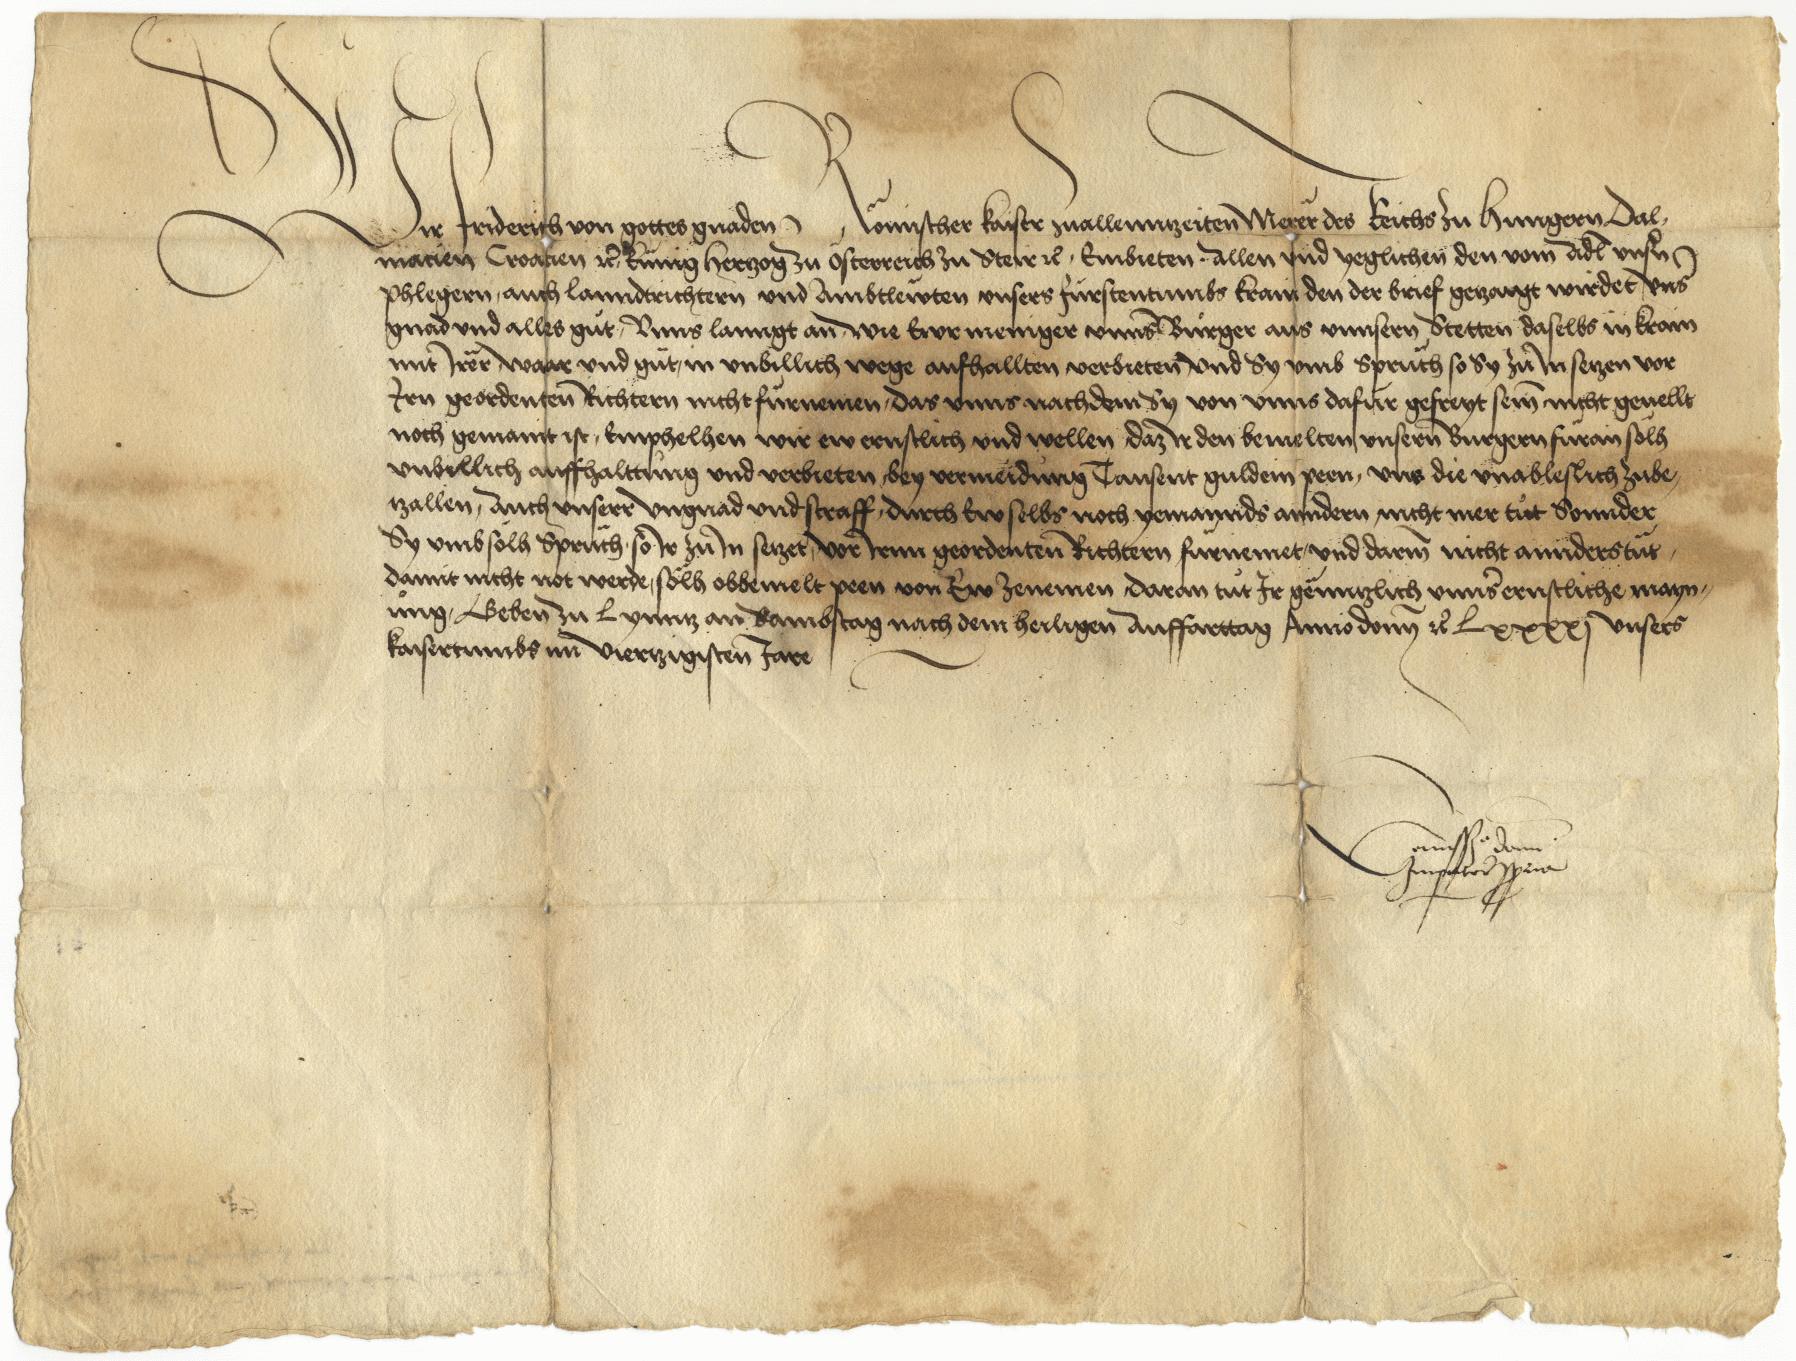 Wir Friderich von gottes gnaden Römischer kaiser zuallenntzeiten Merer des Reichs zu Hungern Dal-
macien Croacien rc̃ kunig Hertzog zu Österreich zu Steir rc̃ Embieten Allen vnd yeglichen den vom Adl vnsn̄
phlegern auch lanndtrichtern vnd Ambtlewten vnsers furstentumbs krain den der brief getzaigt wirdet vns
gnad vnd alles gůt. Vnns lanngt an wie Ewr meniger vnns̄ Burger aus vnnsern Stetten daselbs in krain
mit Irer waar vnd gůt in vnbillich wege aufhallten verbieten vnd Sy vmb Sprüch so Sy zu In setzen vor
Irn geordenten Richtern nicht furnemen, das vnns nachdem Sy von vnns dafür gefreyt sein nicht geuellt
noch gemaint ist, Emphelhen wir ew ernstlich vnd wellen daz Ir den bemelten vnsern Burgern füran solh
vnbillich auffhalttung vnd verbieten, bey vermeidung Tausent guldein peen, vns die vnableslich zube-
tzallen, Auch vnserr vngnad vnd straff, durch Ew selbs noch yemannds anndern nicht mer tůt Sonnder
Sy vmb solh Sprüch so Ir zu In setzet, vor Irnn geordenten Richtern fürnemet, vnd darin̄ nicht annders tůt,
damit nicht not werde, solh obbemelt peen von Ew zenemen, daran tůt Ir genntzlich vnns̄ ernstliche mayn-
ung, Geben zu Lynntz an Sambstag nach dem heiligen Auffarttag Anno domī rc̃ Lxxxxj vnsers
kaisertumbs im Viertzigisten Jare
Comissio domī
Imperatoris ppria